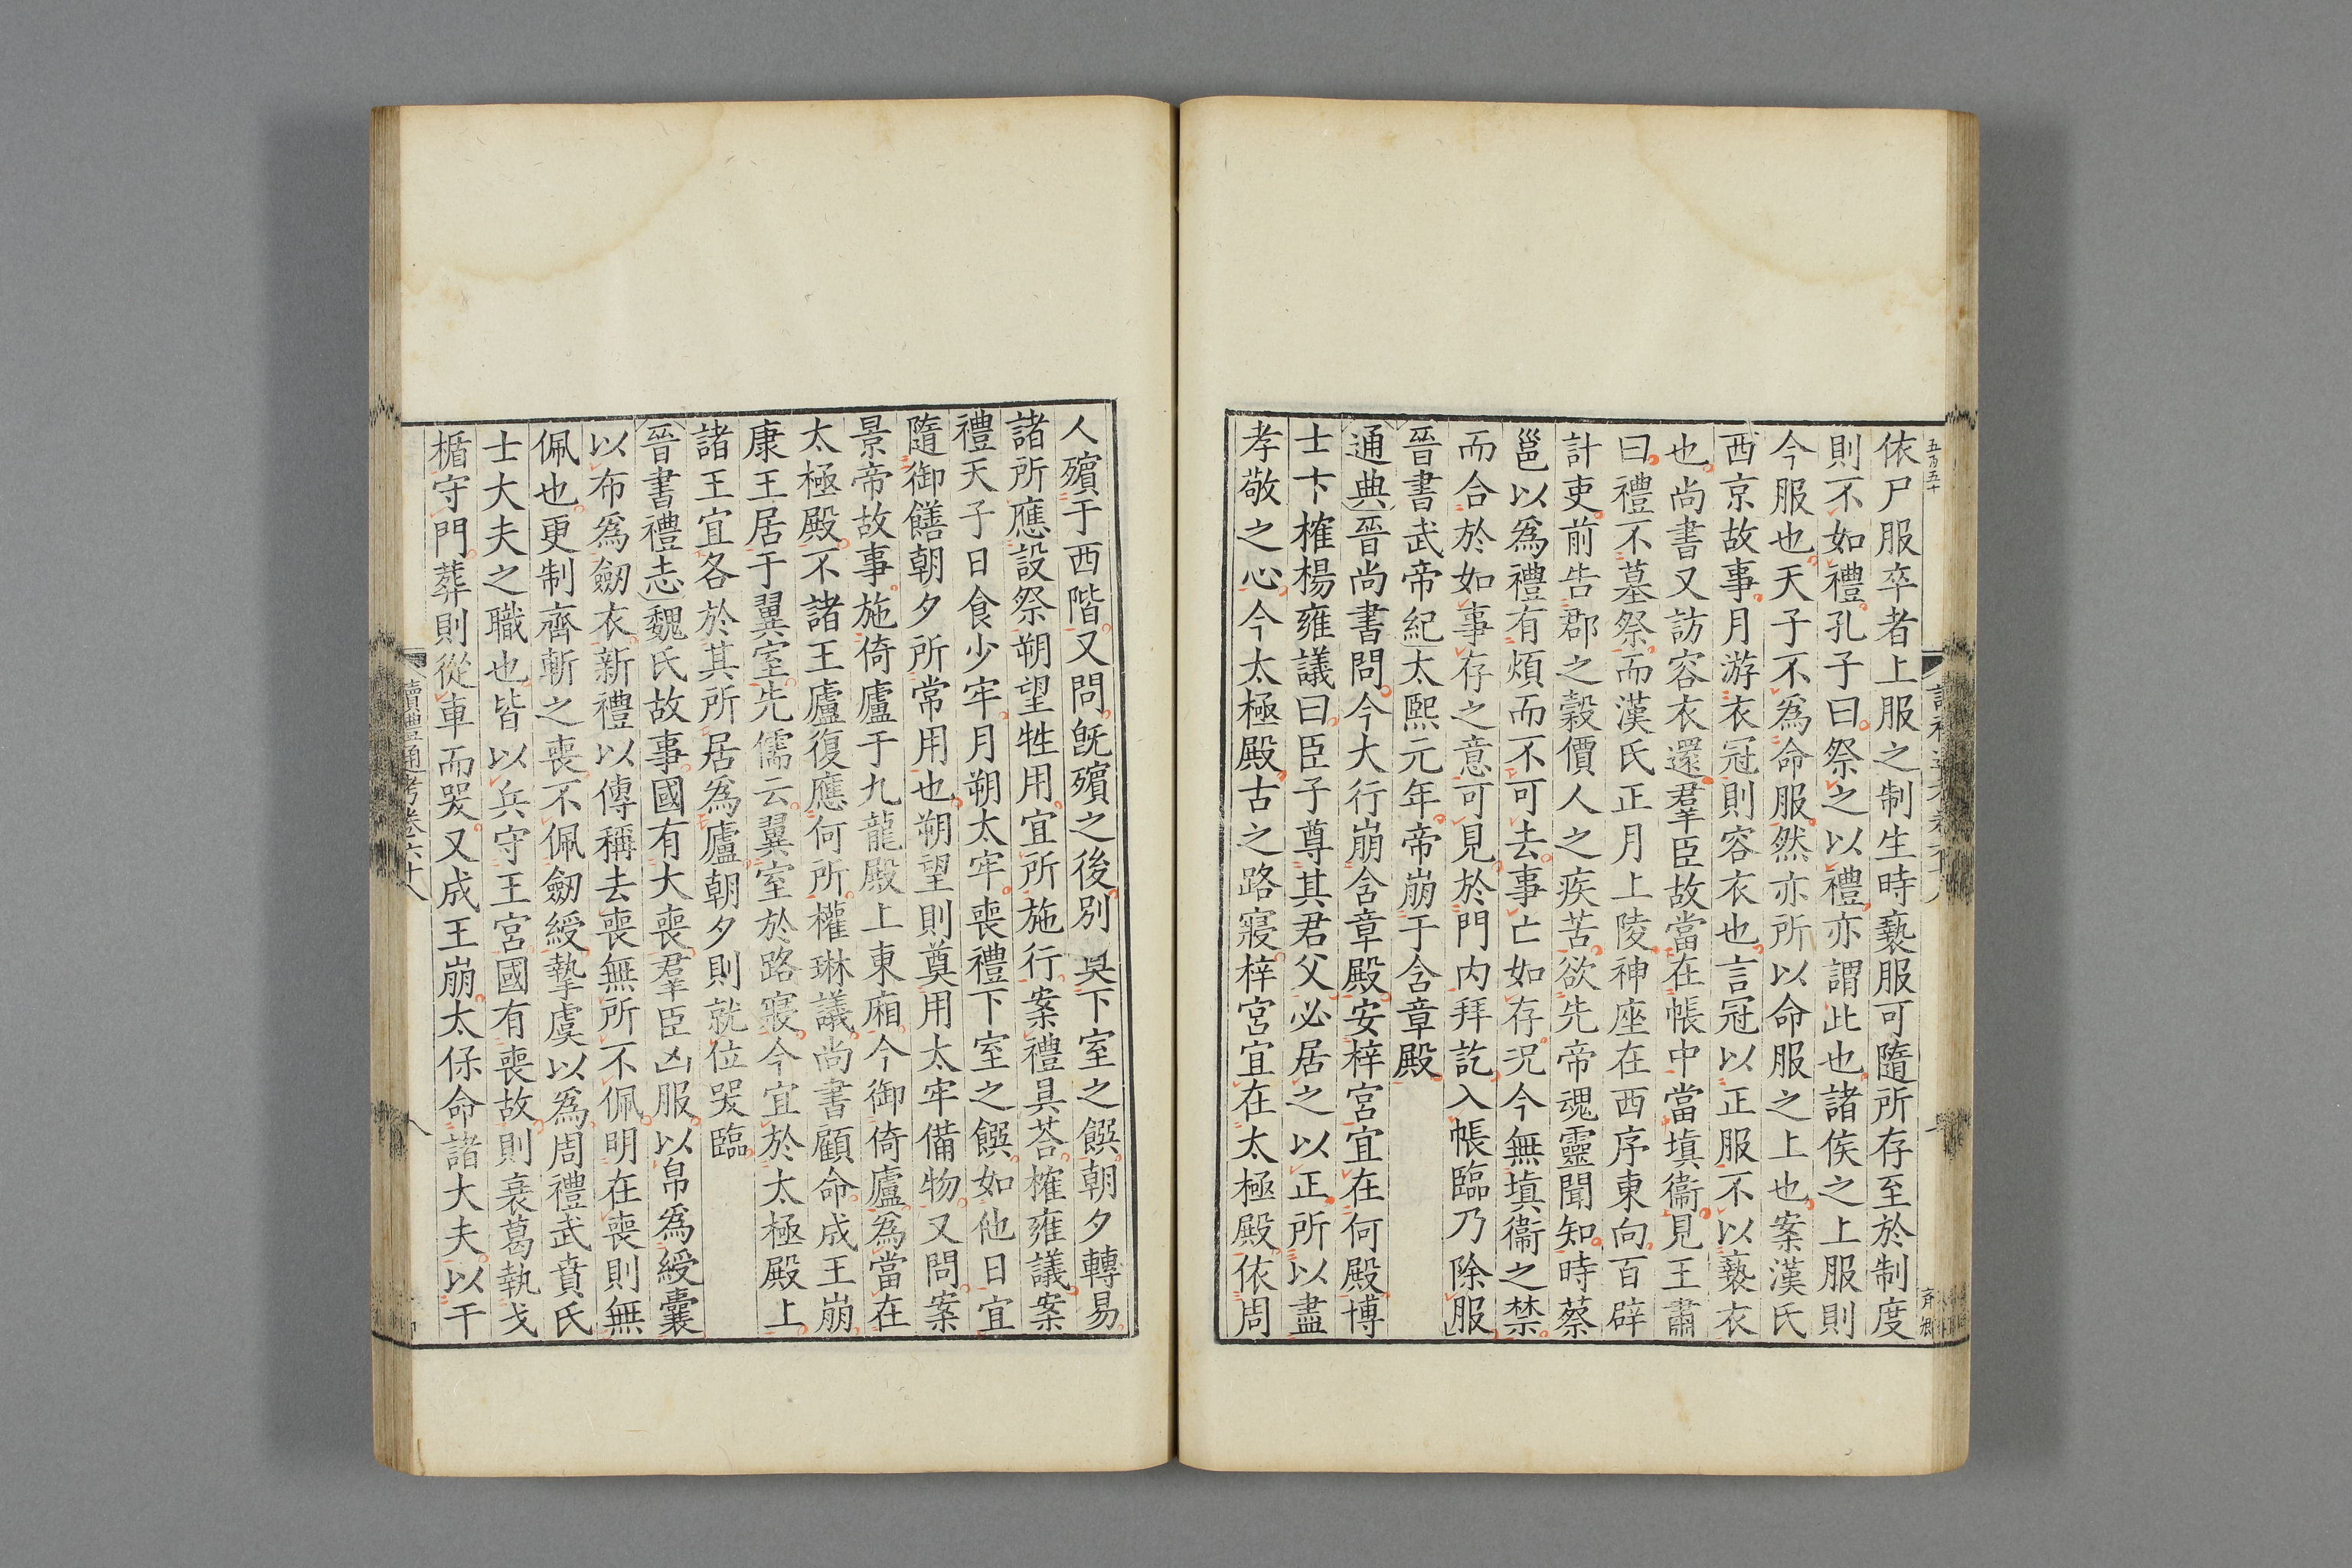 五百五十
依尸服卒者上服之制生時褻服可隨所存至於制度
則不如禮孔子曰祭之以禮亦謂此也諸侯之上服則
今服也天子不爲命服然亦所以命服之上也案漢氏
西京故事月游衣冠則容衣也言冠以正服不以褻衣
也尚書又訪容衣還羣臣故當在帳中當填衞見王肅
曰禮不墓祭而漢氏正月上陵神座在西序東向百辟
計吏前告郡之穀價人之疾苦欲先帝魂靈聞知時蔡
邕以爲禮有煩而不可去事亡如存况今無填衞之禁
而合於如事存之意可見於門内拜訖入帳臨乃除服
晉書武帝紀太熙元年帝崩于含章殿
通典晉尚書問今大行崩含章殿安梓宮宜在何殿博
士卞搉楊雍議曰臣子尊其君父必居之以正所以盡
孝敬之心今太極殿古之路寢梓宮宜在太極殿依周
人殯于西階又問旣殯之後別下室之饌朝夕轉易
諸所應設祭朔望牲用宜所施行案禮具荅搉雍議案
禮天子日食少牢月朔太牢喪禮下室之饌如他日宜
隨御饍朝夕所常用也朔望則奠用太牢備物又問案
景帝故事施倚廬于九龍殿上東廂今御倚廬爲當在
太極殿不諸王廬復應何所權琳議尚書顧命成王崩
康王居于翼室先儒云翼室於路寢今宜於太極殿上
諸王宜各於其所居爲廬朝夕則就位哭臨
晉書禮志魏氏故事國有大喪羣臣凶服以帛爲綬囊
以布爲劒衣新禮以傳稱去喪無所不佩明在喪則無
佩也更制齊斬之喪不佩劒綬摯虞以爲周禮武賁氏
士大夫之職也皆以兵守王宮國有喪故則衰葛執戈
楯守門葬則從車而哭又成王崩太保命諸大夫以干
讀禮通考卷六十八
八